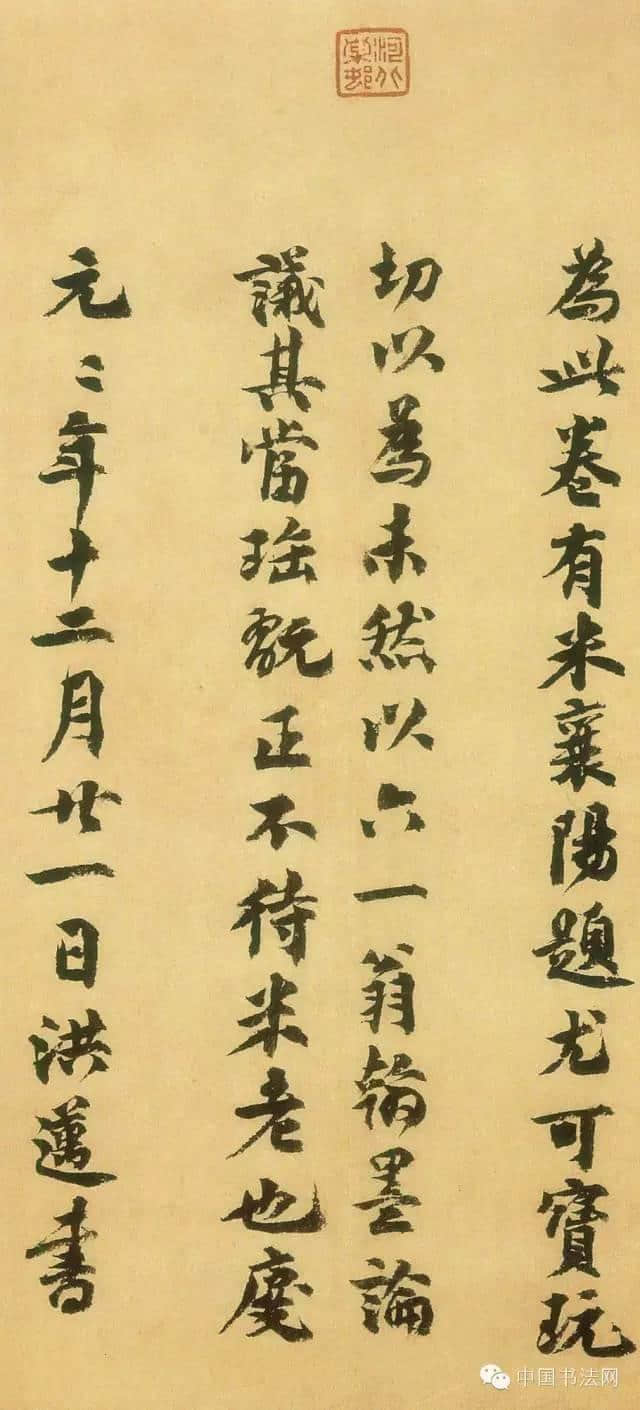 河北棠村
為此卷有米襄陽題尤可寶玩
切以為未然以六一翁翰墨論
議其當珤翫正不待米老也慶
元〻年十二月廿一日洪邁書
中国书法网